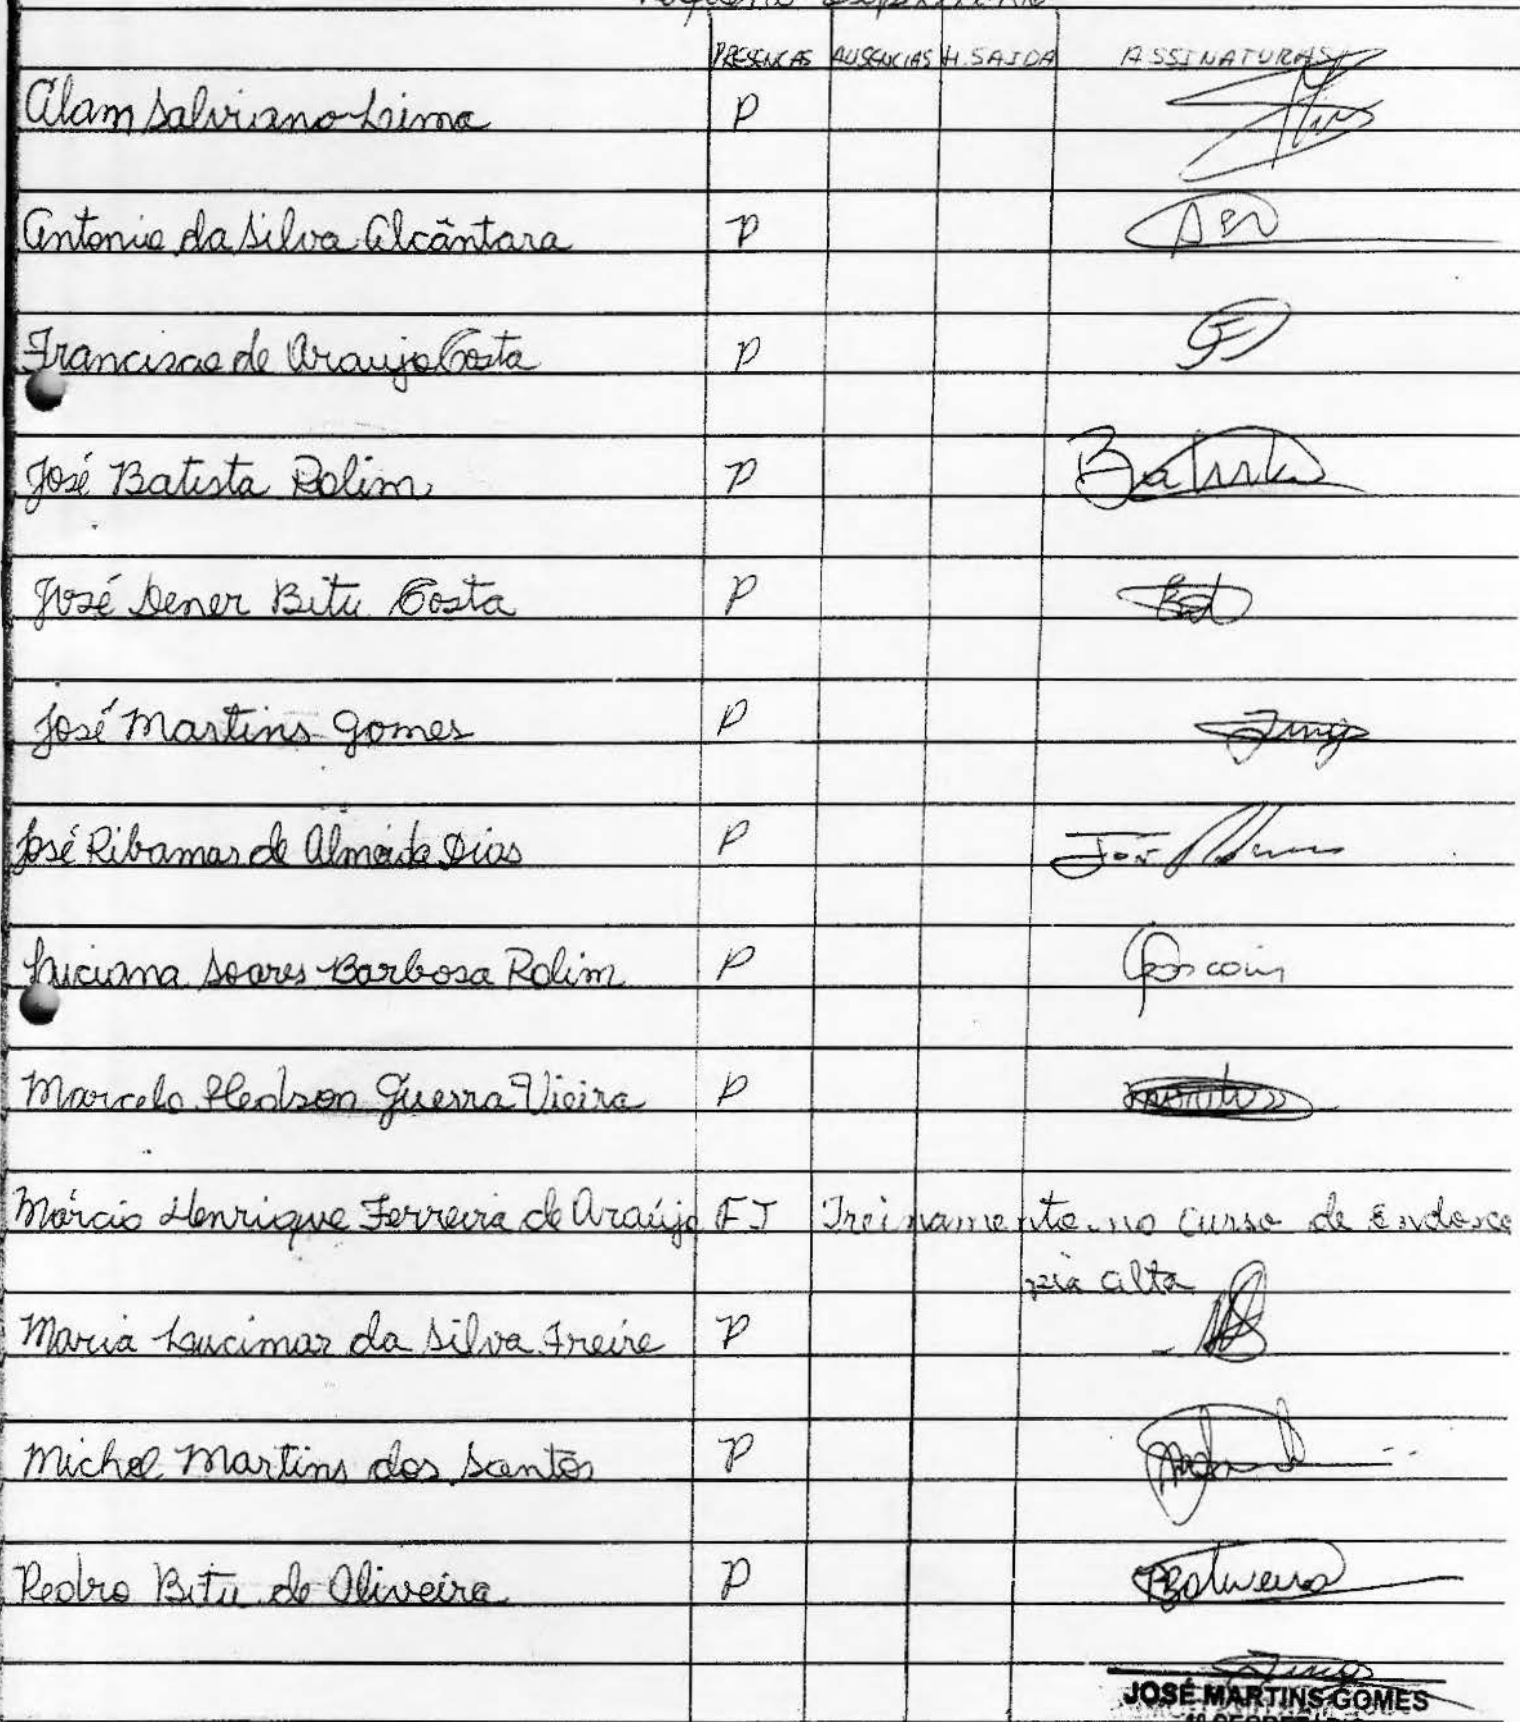 Pequeno Expediente
PRESENCAS AUSENCIAS H. SAIDA ASSINATURAS
Alam Salviano Lima P
Antonio da Silva Alcântara P
Francisco de Araujo Costa P
José Batista Rolim P Batista
José Dener Bitu Costa P
José Martins Gomes P
José Ribamar de Almeida Dias P
Luciana Soares Barbosa Rolim P
Marcelo Hedson Guerra Vieira P
Márcio Henrique Ferreira de Araújo FJ Treinamento no curso de Endosco
pia alta
Maria Lucimar da Silva Freire P
Michel Martins dos Santos P
Pedro Bitu de Oliveira P
JOSÉ MARTINS GOMES
1º SECRETÁRIO